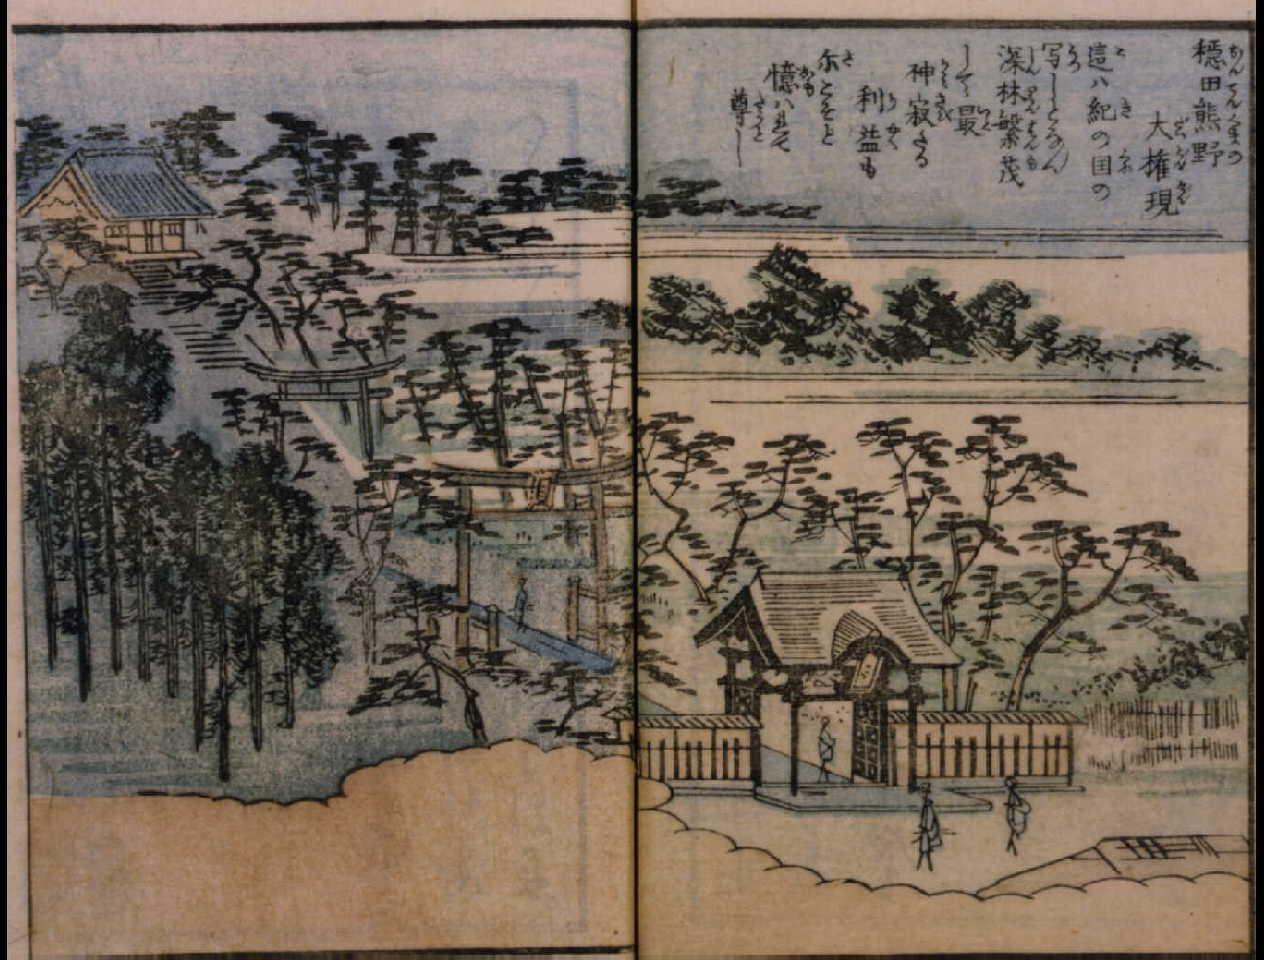 穏田熊野
大権現
這ハ紀の国の
写しとなん
深林繁茂
して最
神寂たる
利益も
尓とそと
憶ハれて
尊し